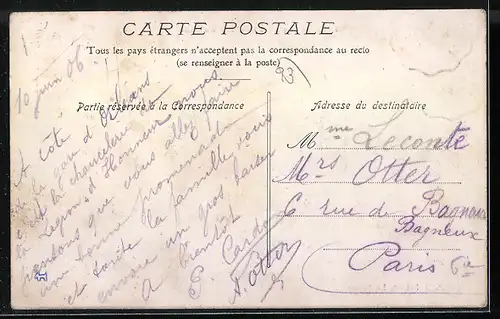 CARTE POSTALE
Tous les pays étrangers n'acceptent pas la correspondance au recio
(se renseigner à la poste)
93
Partie réservée à la Correspondance
Adresse du destinataire
10 juin 06
A côté
de la gare d'Orléans
c'est la chancelerie
la Legion d'Honneur nous
pensons que vous allez faire
une bonne promenade
et toute la famille vous
envoie un gros baiser
A bientôt
E. Cardo
A. Otter
Mme Leconte
Mrs Otter
6 rue de Bagneux
Bagneux
Paris 6e